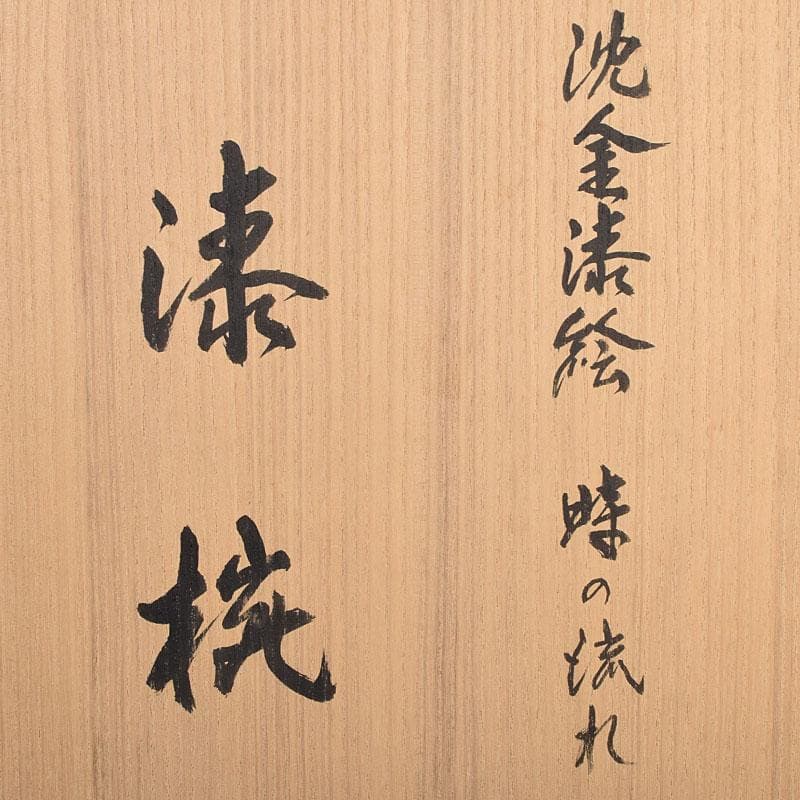 沈金漆絵 時の流れ
漆椀